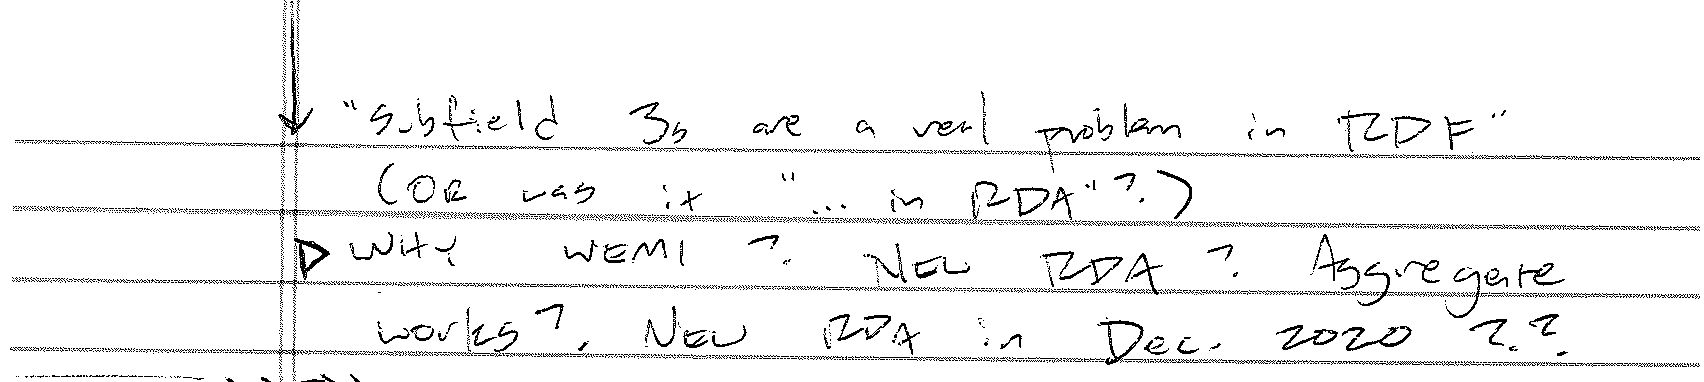 "Subfield 3s are a real problem in RDF"
(OR was it "... in RDA"?)
WHY WEMI? NEW RDA? Aggregate
works? NEW RDA in Dec. 2020 ??